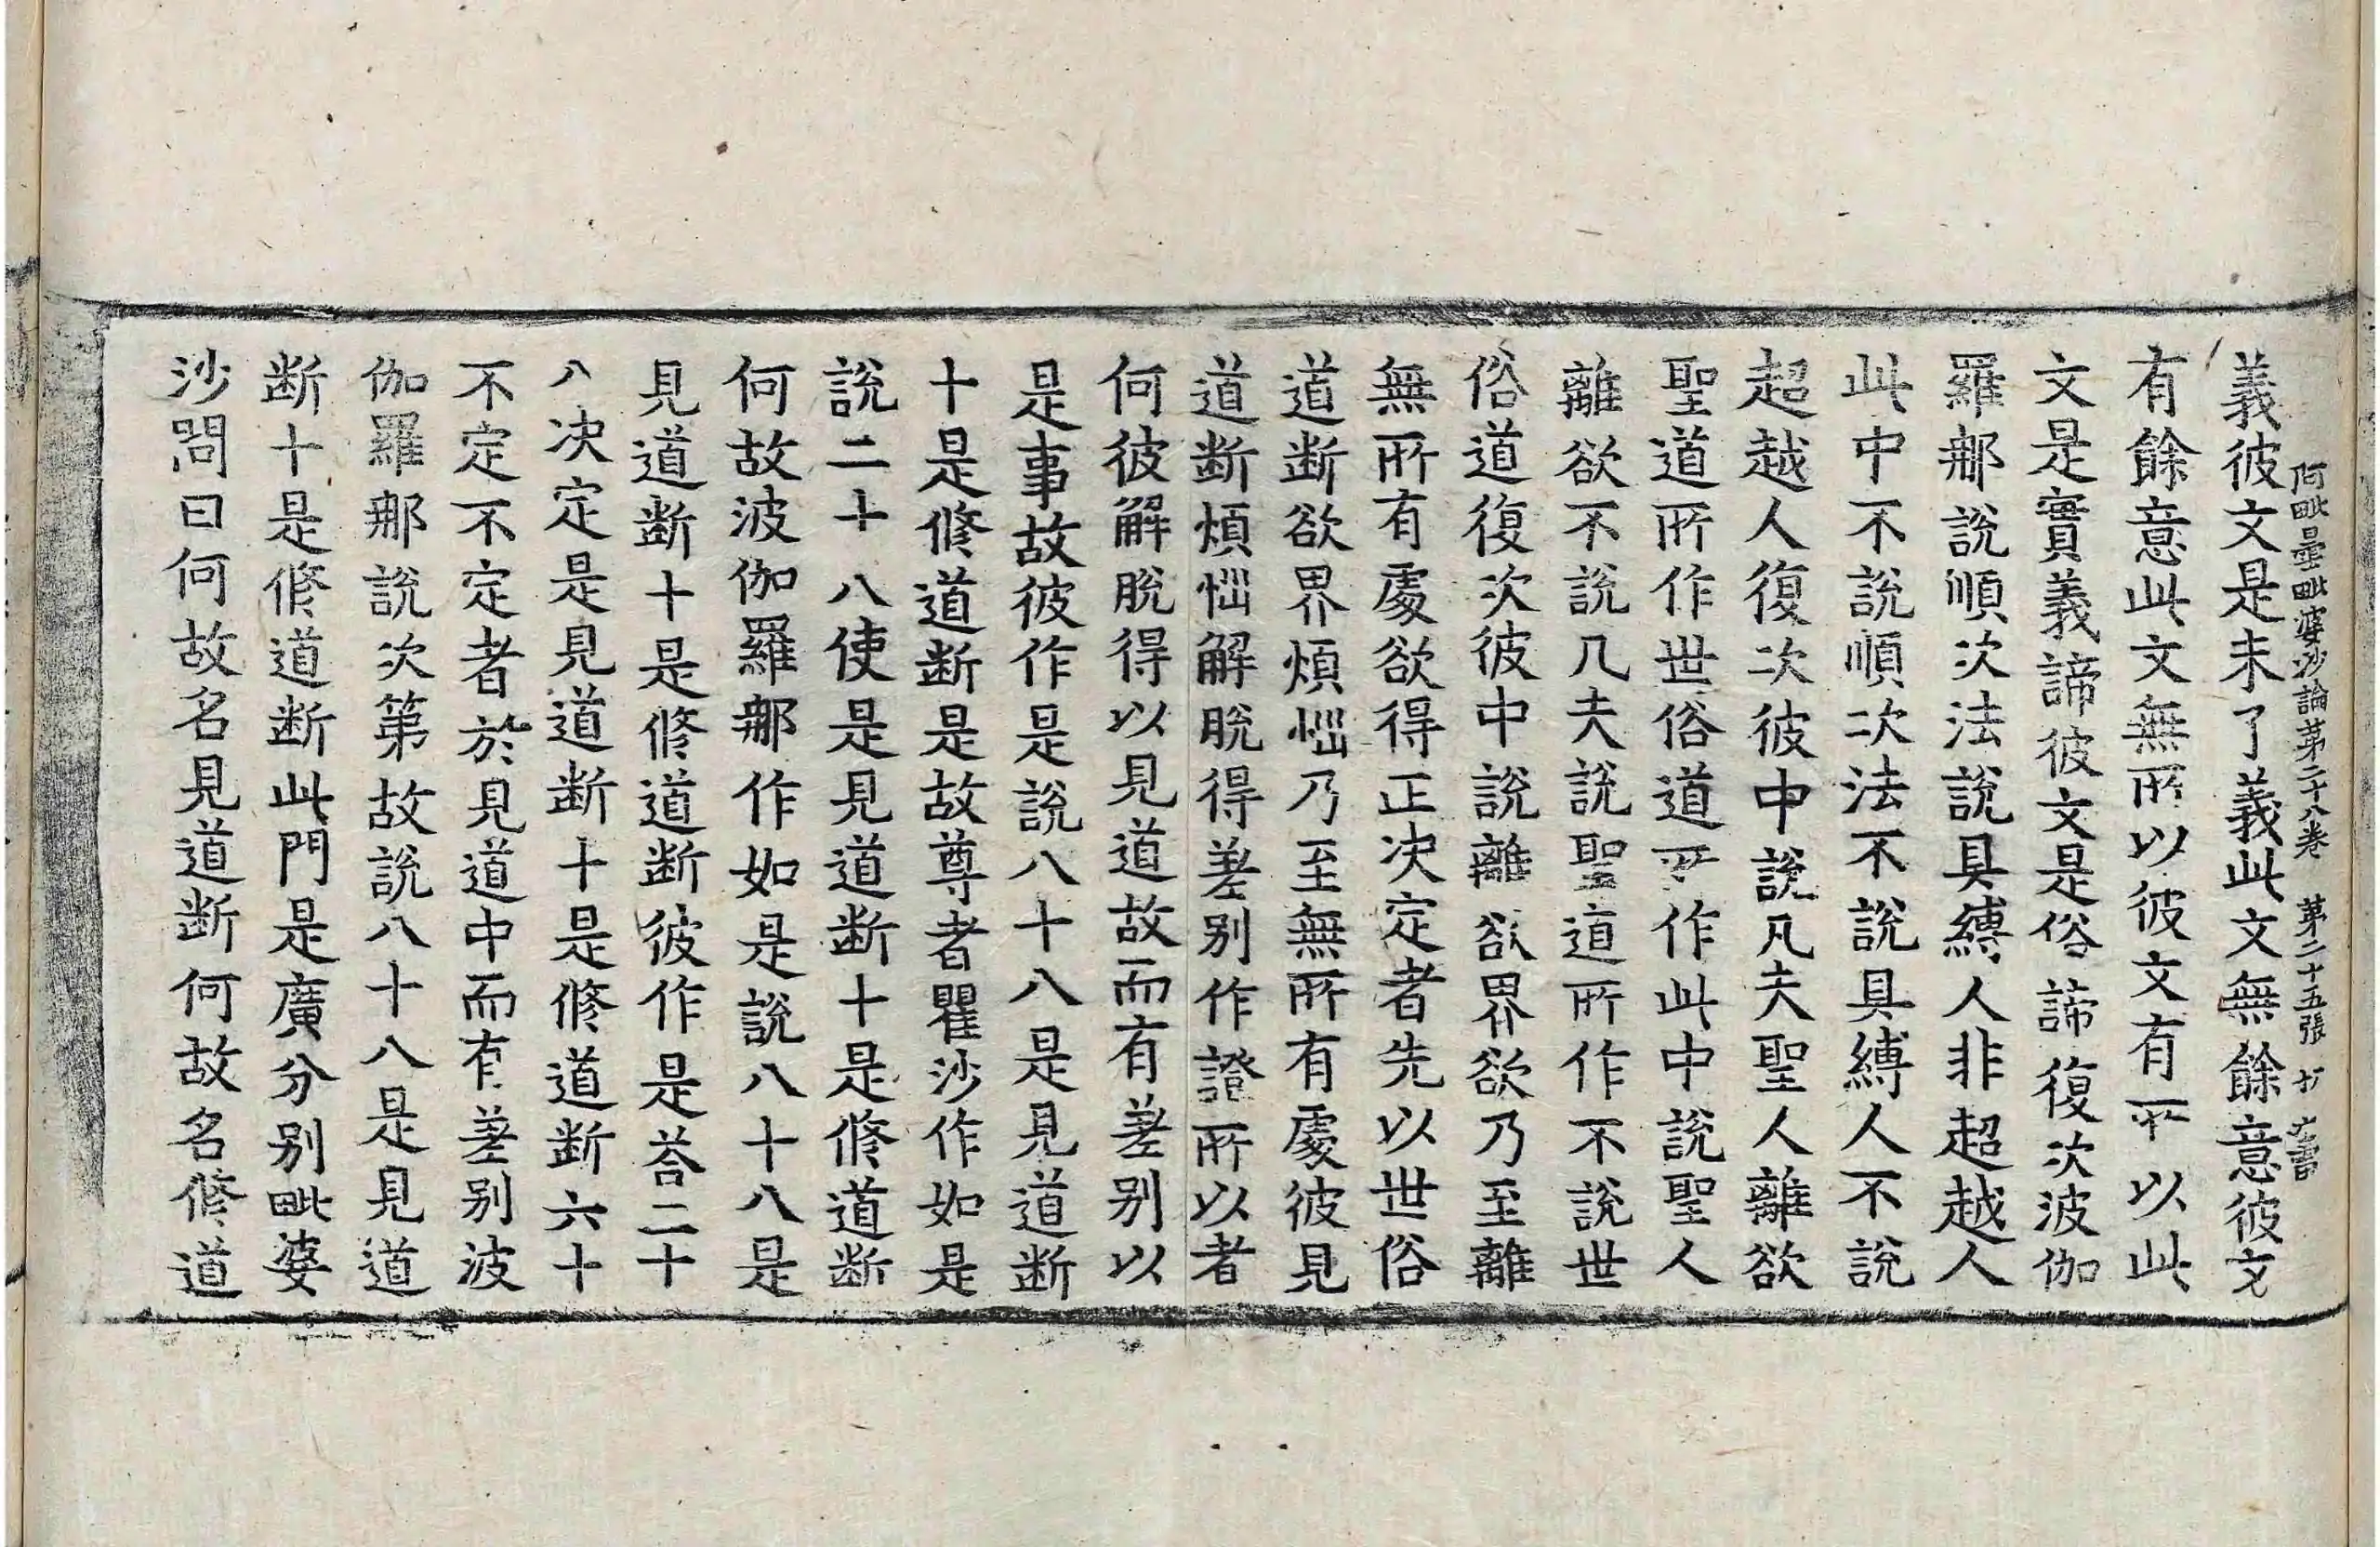 義彼文是未了義此文無餘意彼文
阿毗曇毗婆沙論第二十八卷 第二十五張
有餘意此文無所以彼文有所以此
文是實義諦彼文是俗諦復次波伽
羅那說順次法說具縛人非超越人
此中不說順次法不說具縛人不說
超越人復次彼中說凡夫聖人離欲
聖道所作世俗道所作此中說聖人
離欲不說凡夫說聖道所作不說世
俗道復次彼中說離欲界欲乃至離
無所有處欲得正决定者先以世俗
道断欲界煩惱乃至無所有處彼見
道断煩惱解脫得差别作證所以者
何彼解脫得以見道故而有差别以
是事故彼作是說八十八是見道断
十是修道断是故尊者瞿沙作如是
說二十八使是見道断十是修道断
何故波伽羅那作如是說八十八是
見道断十是修道断彼作是荅二十
八决定是見道断十是修道断六十
不定不定者於見道中而有差别波
伽羅那說次第故說八十八是見道
断十是修道断此門是廣分别毗婆
沙問曰何故名見道断何故名修道